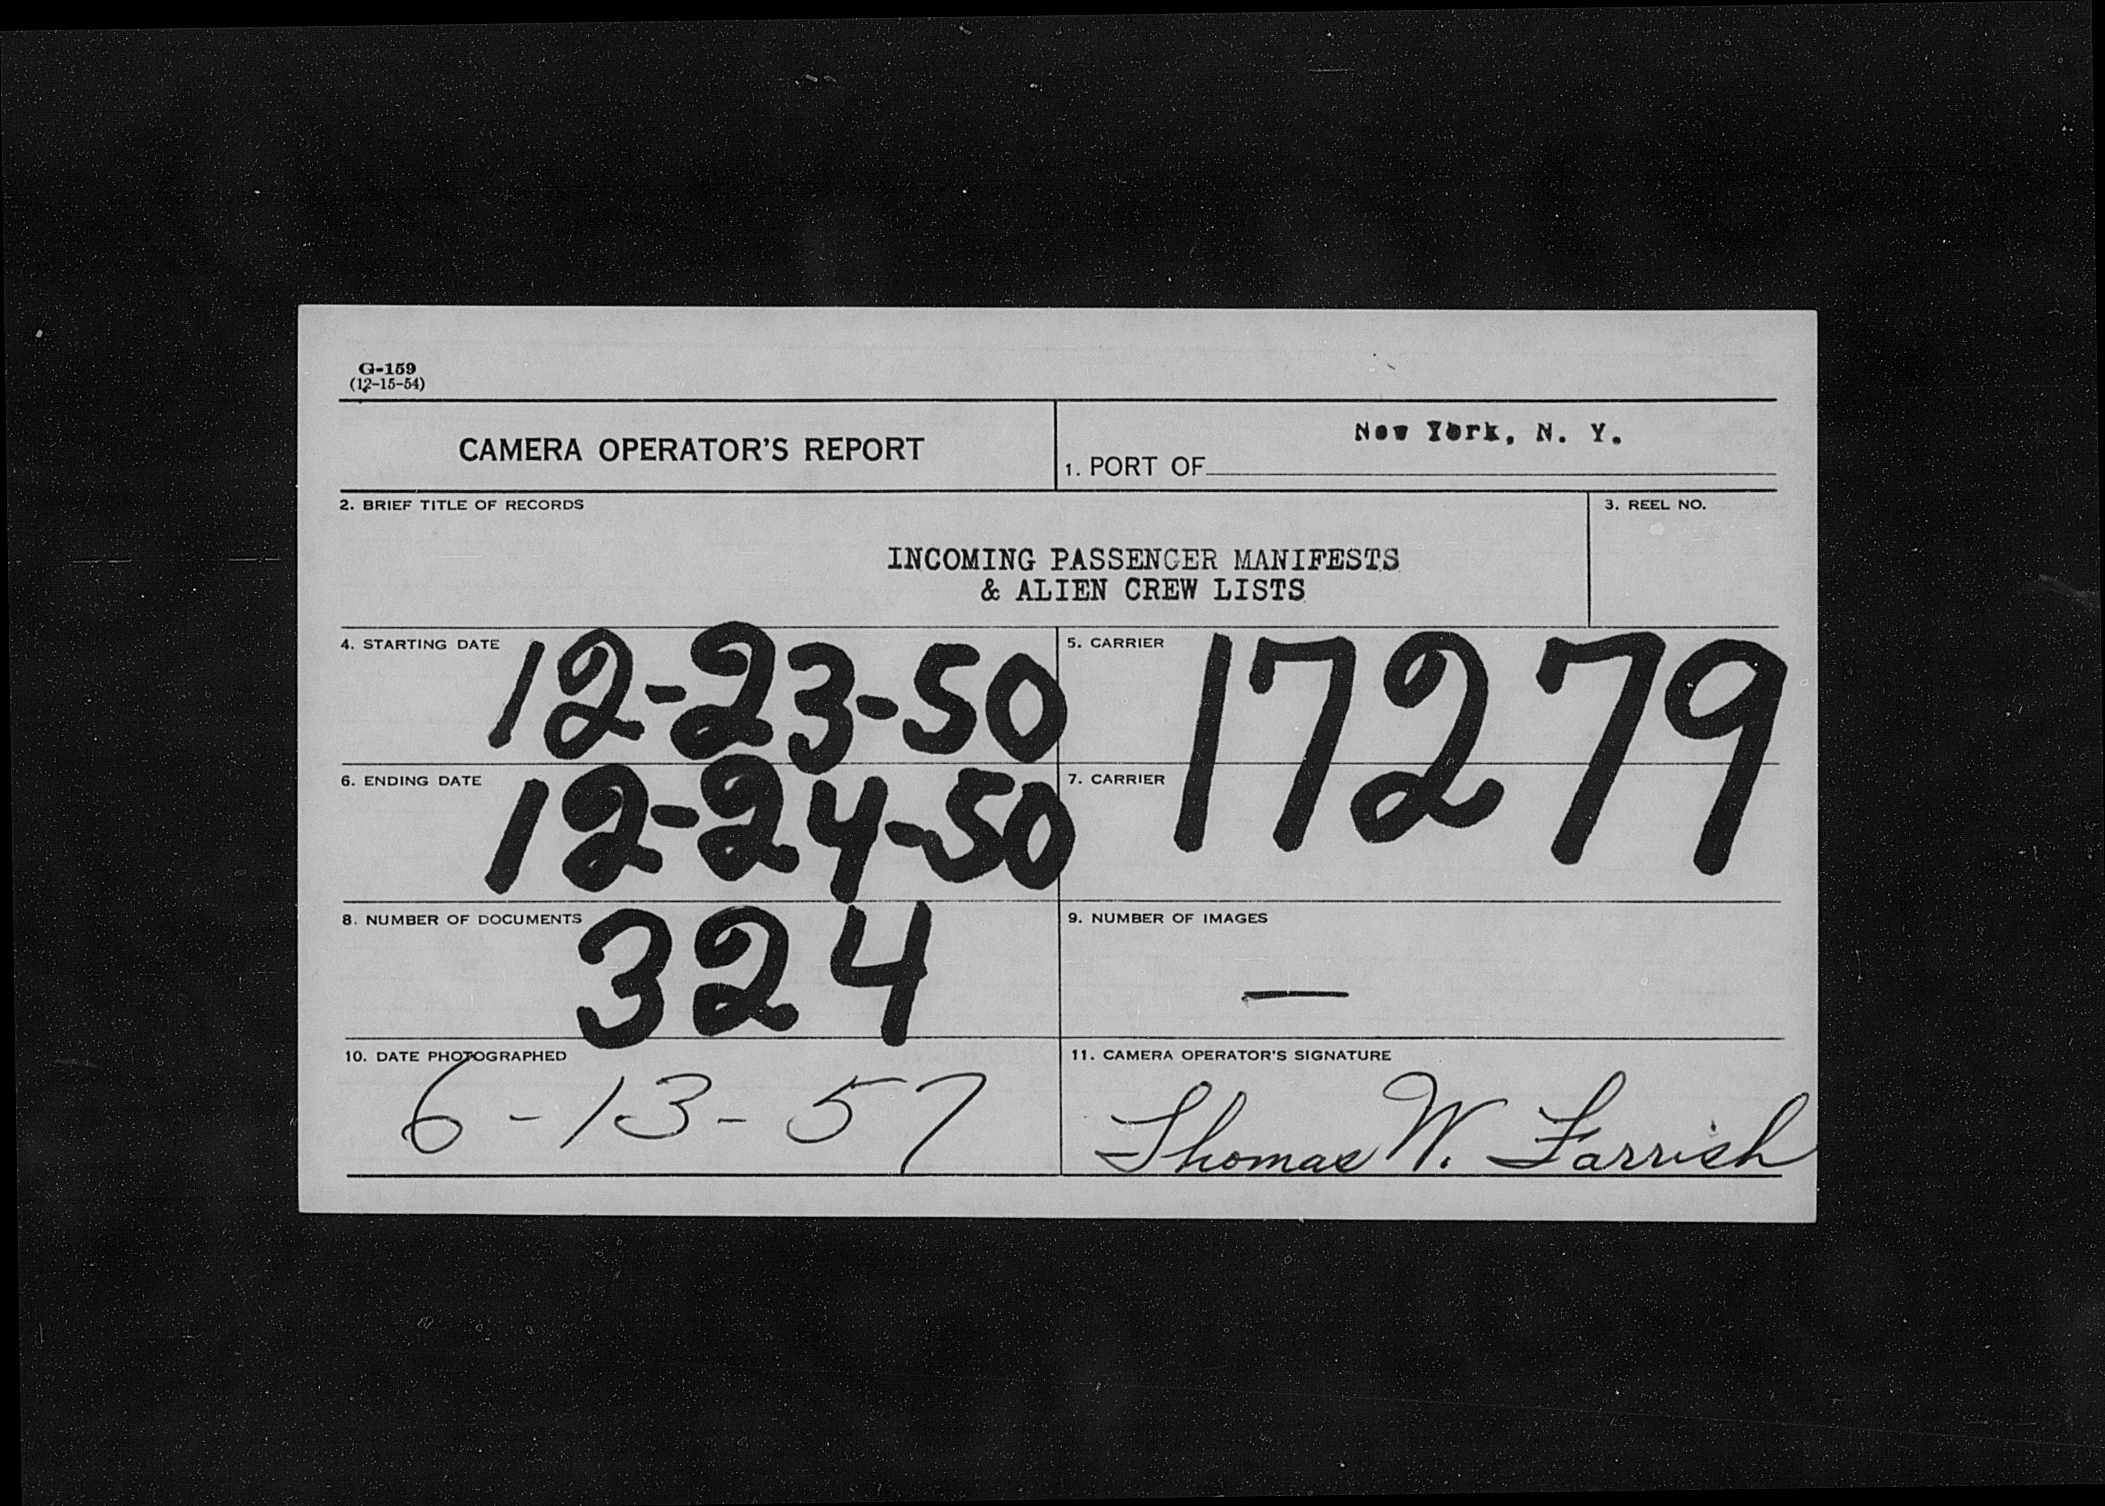 G-159
(12-15-54)
CAMERA OPERATOR'S REPORT
New York, N. Y.
1. PORT OF
2. BRIEF TITLE OF RECORDS
3. REEL NO.
INCOMING PASSENGER MANIFESTS
& ALIEN CREW LISTS
4. STARTING DATE
12-23-50
5. CARRIER
17279
6. ENDING DATE
12-24-50
7. CARRIER
8. NUMBER OF DOCUMENTS
324
9. NUMBER OF IMAGES
—
10. DATE PHOTOGRAPHED
6-13-57
11. CAMERA OPERATOR'S SIGNATURE
Thomas W. Farrish